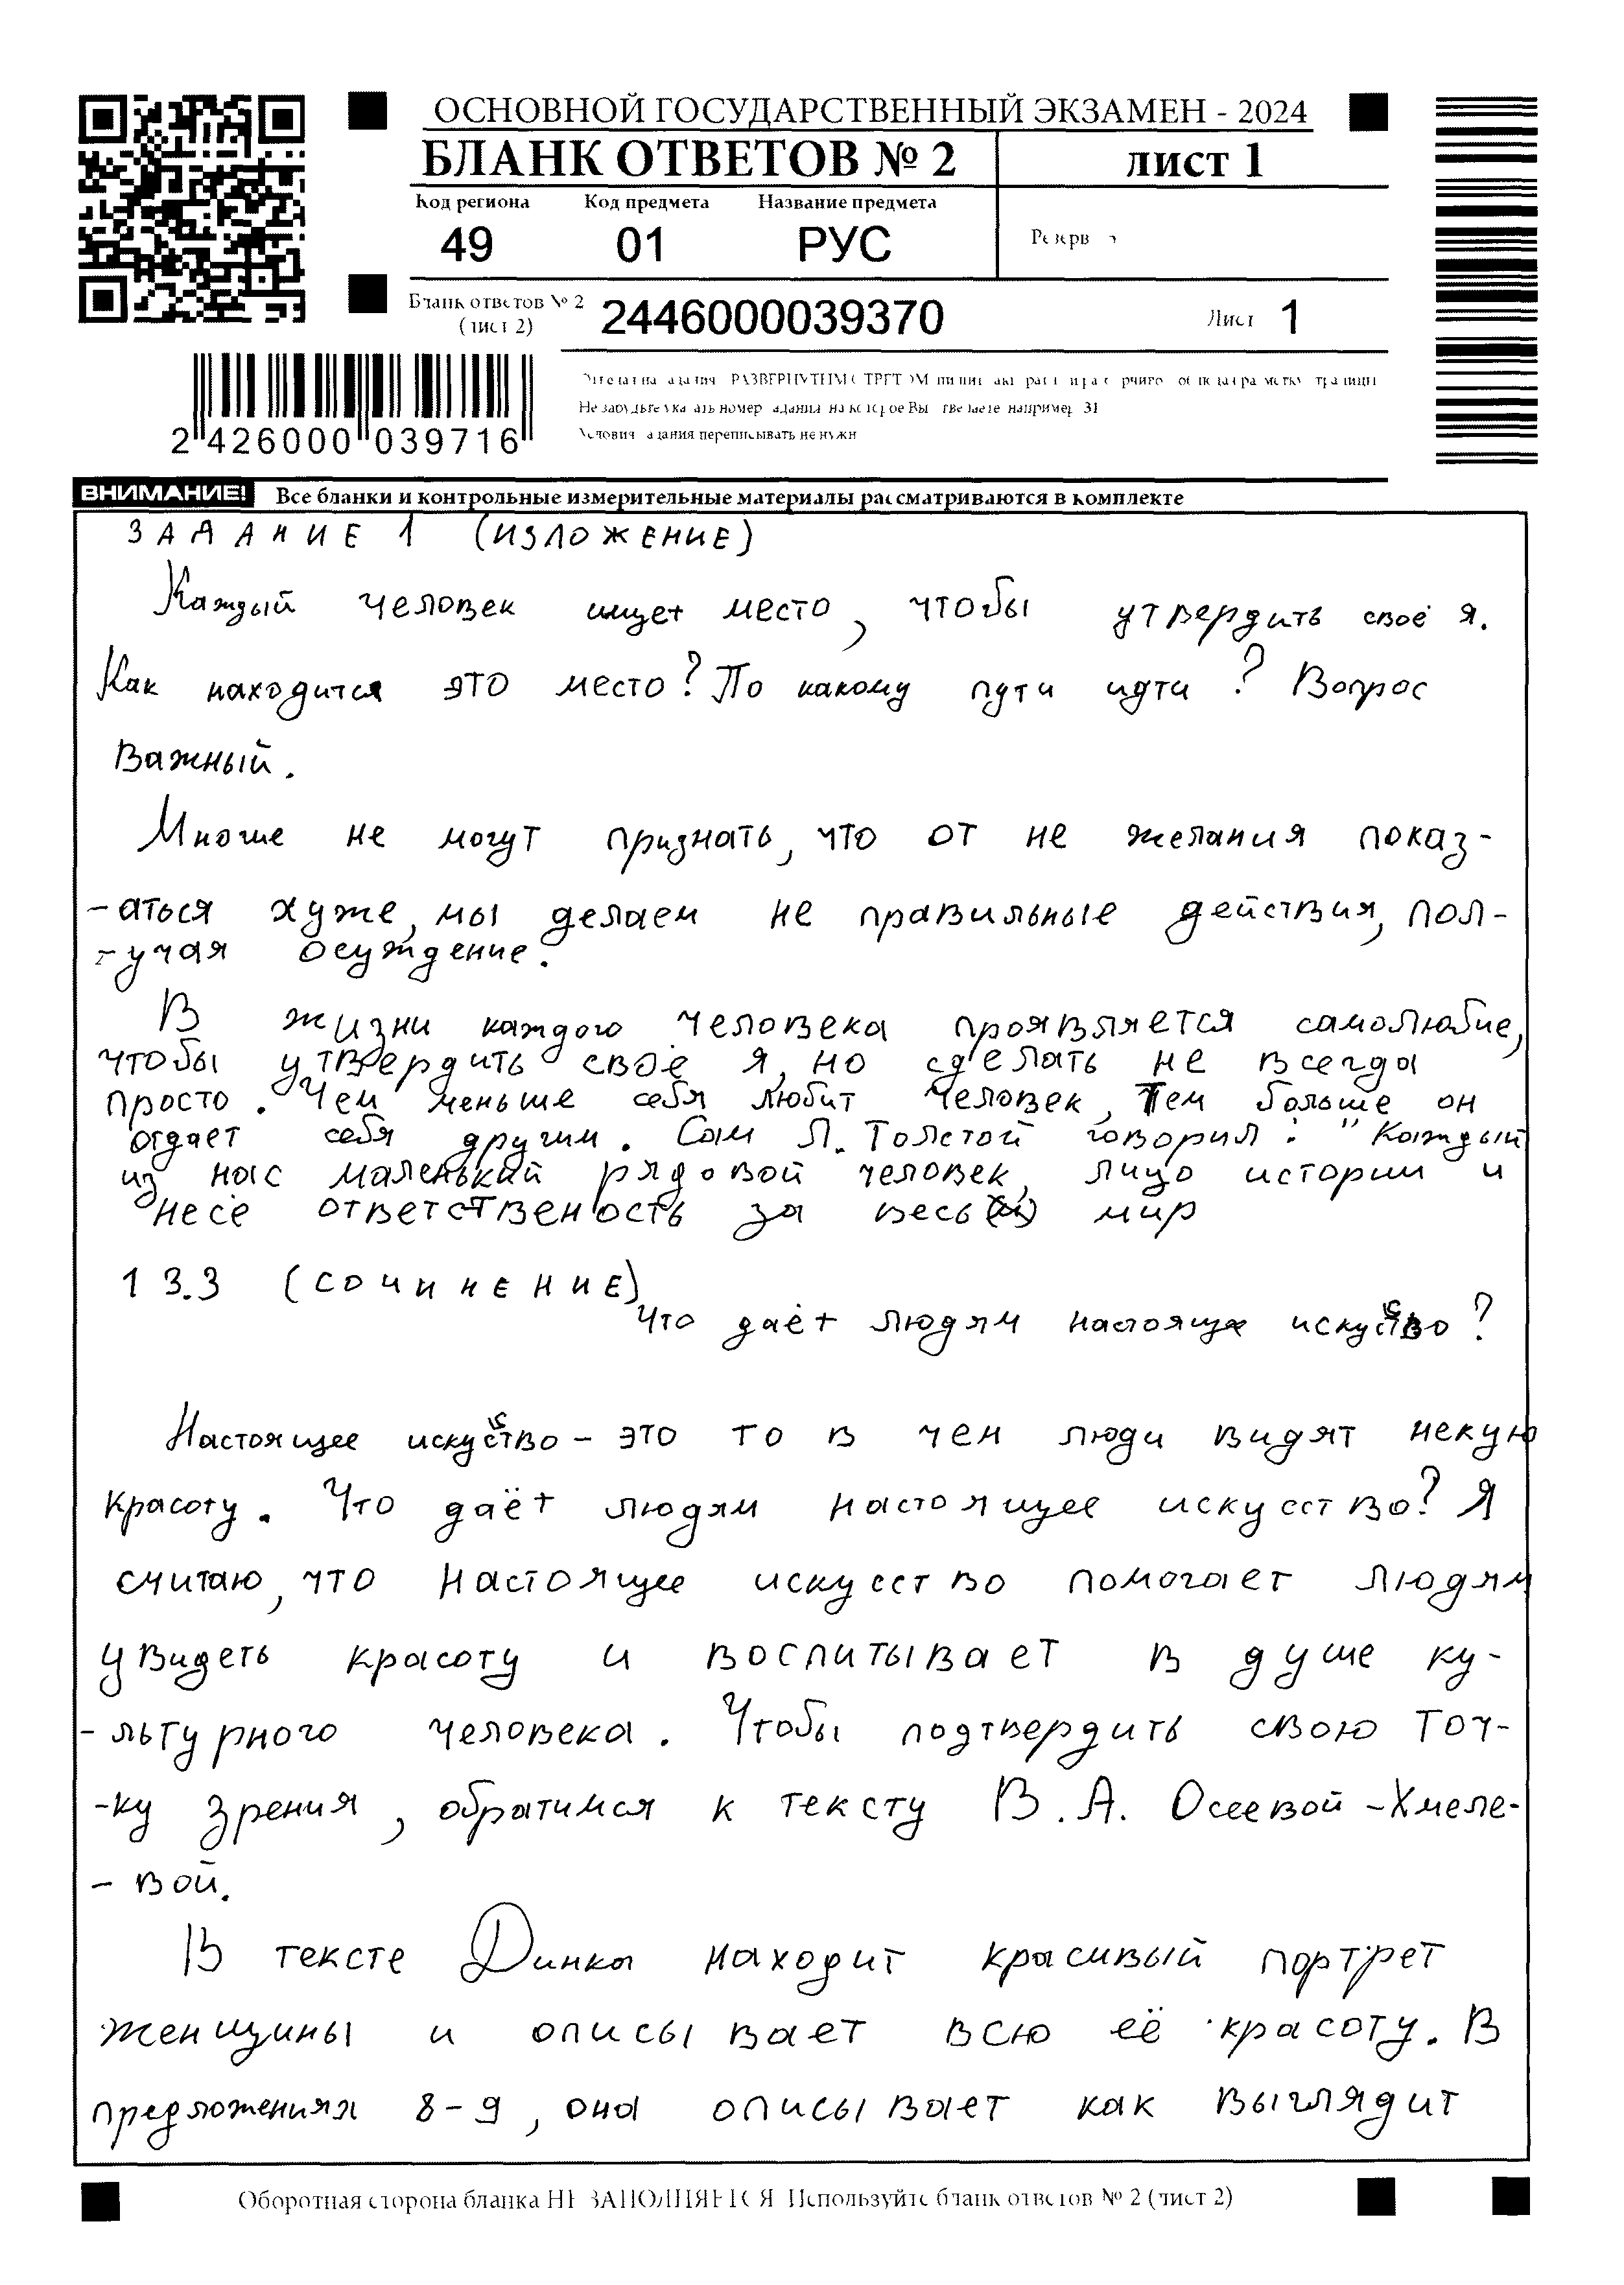 ОСНОВНОЙ ГОСУДАРСТВЕННЫЙ ЭКЗАМЕН - 2024
БЛАНК ОТВЕТОВ № 2
ЛИСТ 1
Код региона Код предмета Название предмета
49 01 РУС
Резерв
Бланк ответов № 2
(лист 2)
2446000039370
Лист 1
2 426000 039716
Не забудьте указать номер задания на которое Вы отвечаете например 31
Условия задания переписывать не нужн
ВНИМАНИЕ! Все бланки и контрольные измерительные материалы рассматриваются в комплекте
ЗАДАНИЕ 1 (ИЗЛОЖЕНИЕ)
Каждый человек ищет место, чтобы утвердить своё я.
Как находится это место? По какому пути идти? Вопрос
важный.
Многие не могут признать, что от не желания показ-
-аться хуже, мы делаем не правильные действия, пол-
-учая осуждение.
В жизни каждого человека проявляется самолюбие,
чтобы утвердить своё я, но сделать не всегда
просто. Чем меньше себя любит человек, тем больше он
отдает себя другим. Сам Л. Толстой говорил: "Каждый
из нас маленький рядовой человек, лицо истории и
несё ответственость за весь мир
13.3 (СОЧИНЕНИЕ)
Что даёт людям настояще искусство?
Настоящее искусство - это то в чем люди видят некую
красоту. Что даёт людям настоящее искусство? Я
считаю, что настоящее искусство помогает людям
увидеть красоту и воспитывает в душе ку-
-льтурного человека. Чтобы подтвердить свою точ-
-ку зрения, обратимся к тексту В.А. Осеевой-Хмеле-
-вой.
В тексте Динка находит красивый портрет
женщины и описывает всю её красоту. В
предложениях 8-9, она описывает как выглядит
Оборотная сторона бланка НЕ ЗАПОЛНЯЕТСЯ Используйте бланк ответов № 2 (лист 2)